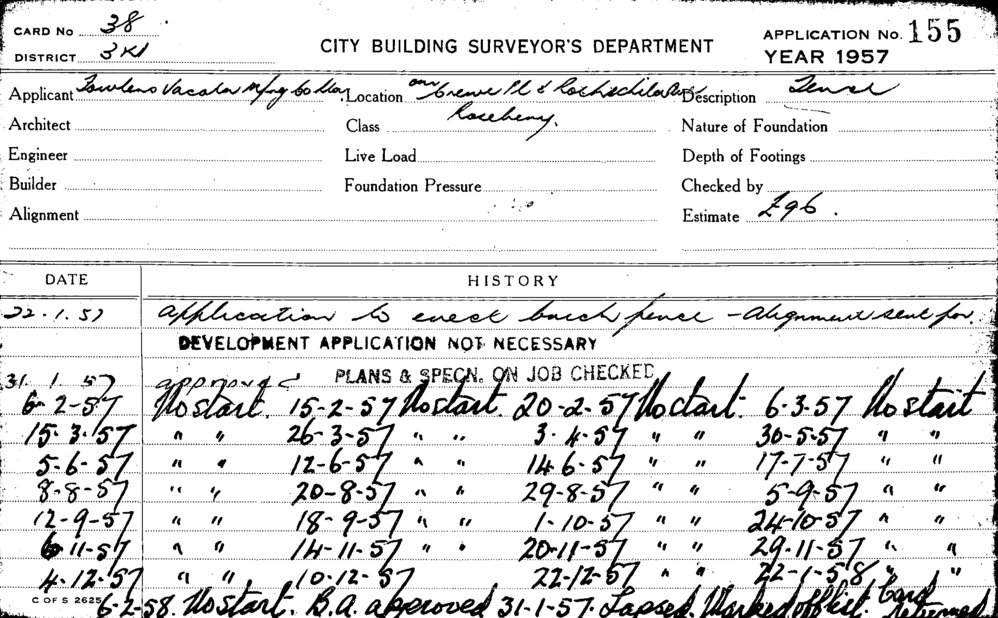 CARD No 38
DISTRICT 3KI
CITY BUILDING SURVEYOR'S DEPARTMENT
APPLICATION No. 155
YEAR 1957
Applicant Fowlers Vacola Mfng Co Location cnr Crewe Pl & Rothschild Description Fence
Architect Class Rosebery. Nature of Foundation
Engineer Live Load Depth of Footings
Builder Foundation Pressure Checked by
Alignment Estimate £96.
DATE HISTORY
22.1.57 Application to erect fence - Alignment sent for.
DEVELOPMENT APPLICATION NOT NECESSARY
31.1.57 approved PLANS & SPECN. ON JOB CHECKED
6-2-57 No start. 15-2-57 No start. 20-2-57 No start. 6.3.57 No start
15.3.57 " " 26-3-57 " " 3.4-57 " " 30-5-57 " "
5-6-57 " " 12-6-57 " " 14 6-57 " " 17-7-57 " "
8-8-57 " " 20-8-57 " " 29-8-57 " " 5-9-57 " "
12-9-57 " " 18-9-57 " " 1-10-57 " " 24-10-57 " "
6-11-57 " " 14-11-57 " " 20-11-57 " " 29-11-57 " "
4-12-57 " " 10-12-57 22-12-57 " " 22-1-58 " "
C OF S 2625 6-2-58. No start. B.A. approved 31-1-57. Lapsed. Marked off list. Card returned